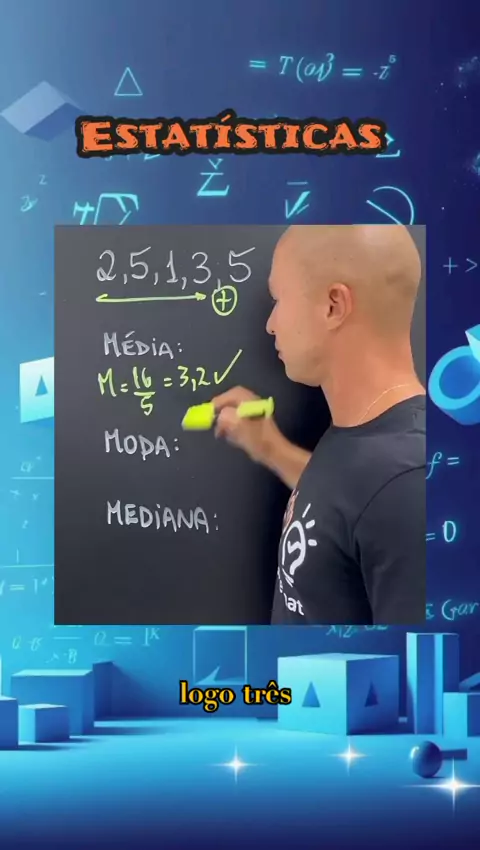 = T(a)³ = -z⁵
ESTATÍSTICAS
2, 5, 1, 3, 5
+
MÉDIA:
M = 16/5 = 3,2 ✓
MODA:
MEDIANA:
at
logo três